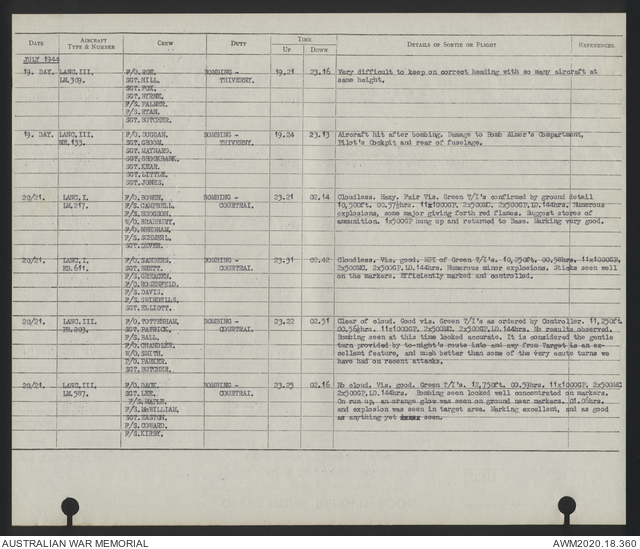 DATE AIRCRAFT TYPE & NUMBER CREW DUTY TIME UP DOWN DETAILS OF SORTIE OR FLIGHT REFERENCES
JULY 1944
19. DAY. LANC,III. F/O. BOBBING – 19.21 23.16 Very difficult to keep on correct heading with so many aircraft at
LM.309. SGT.HILL, THIVERNY. same height.
SGT.FOX,
SGT.BYRNE,
F/S.PALMER,
F/S.RYAN,
SGT.BUTCHER.
19. DAY. LANC,III. F/O. DUGGAN, BOMBING – 19.24 23.13 Aircraft hit after bombing. Damage to Bomb Aimer's Compartment,
NE.133. SGT.GROOM, THIVERNY. Pilot's Cockpit and rear of fuselage.
SGT.MAYNARD,
SGT.BROCKBANK,
SGT.KEAR,
SGT.LITTLE,
SGT.JONES.
20/21. LANC,I. F/O. BOWEN, BOMBING – 23.21 02.14 Cloudless. Hazy. Fair Vis. Green T/I's confirmed by ground detail
LM.217. F/S.CAMPBELL, COURTRAI. 10,500ft. 00.57½hrs. 11x1000GP. 2x500MC. 2x500GP.LD.144hrs. Numerous
F/S.HODGSON, explosions, some major giving forth red flames. Suggest stores of
W/O.BRADBURY, ammunition. 1x500GP hung up and returned to Base. Marking very good.
F/O.NEEDHAM,
F/S.
SGT.
20/21. LANC,I. F/O. SANDERS, BOMBING – 23.31 02.42 Cloudless. Vis. good. MPI of Green T/I's. 10,250ft. 00.58hrs. 11x1000GP,
ED.611. SGT.BRETT, COURTRAI. 2x500MC, 2x500GP.LD.144hrs. Numerous minor explosions. Sticks seen well
F/S.GREACEN, on the markers. Efficiently marked and controlled.
F/O.ROSENFELD,
F/S.DAVIS,
F/S.SWINDELLS,
SGT.ELLIOTT.
20/21. LANC,III. F/O. TOTTENHAM, BOMBING – 23.22 02.51 Clear of cloud. Good vis. Green T/I's as ordered by Controller. 11,250ft.
PB.203. SGT.PATRICK, COURTRAI. 00.56½hrs. 11x1000GP. 2x500MC. 2x500GP.LD.144hrs. No results observed.
F/S.BALL, Bombing seen at this time looked accurate. It is considered the gentle
F/O.CHANDLER, turn provided by to-night's route into and away from Target is an ex-
W/O.SMITH, cellent feature, and much better than some of the very acute turns we
F/O.PARKER, have had on recent attacks.
SGT.BUTCHER.
20/21. LANC,III. F/O. DACK, BOMBING – 23.25 02.16 No cloud. Vis. good. Green T/I's. 12,750ft. 00.59hrs. 11x1000GP. 2x500MC
LM.587. SGT.LEE, COURTRAI. 2x500GP.LD.144hrs. Bombing seen looked well concentrated on markers.
F/S.MAPLE, On run up, an orange glow was seen on ground near markers. 01.06hrs.
F/S.McWILLIAM, and explosion was seen in target area. Marking excellent, and as good
SGT.EASTON, as anything yet seen.
F/S.COWARD,
F/S.KIRBY.
AUSTRALIAN WAR MEMORIAL AWM2020.18.360